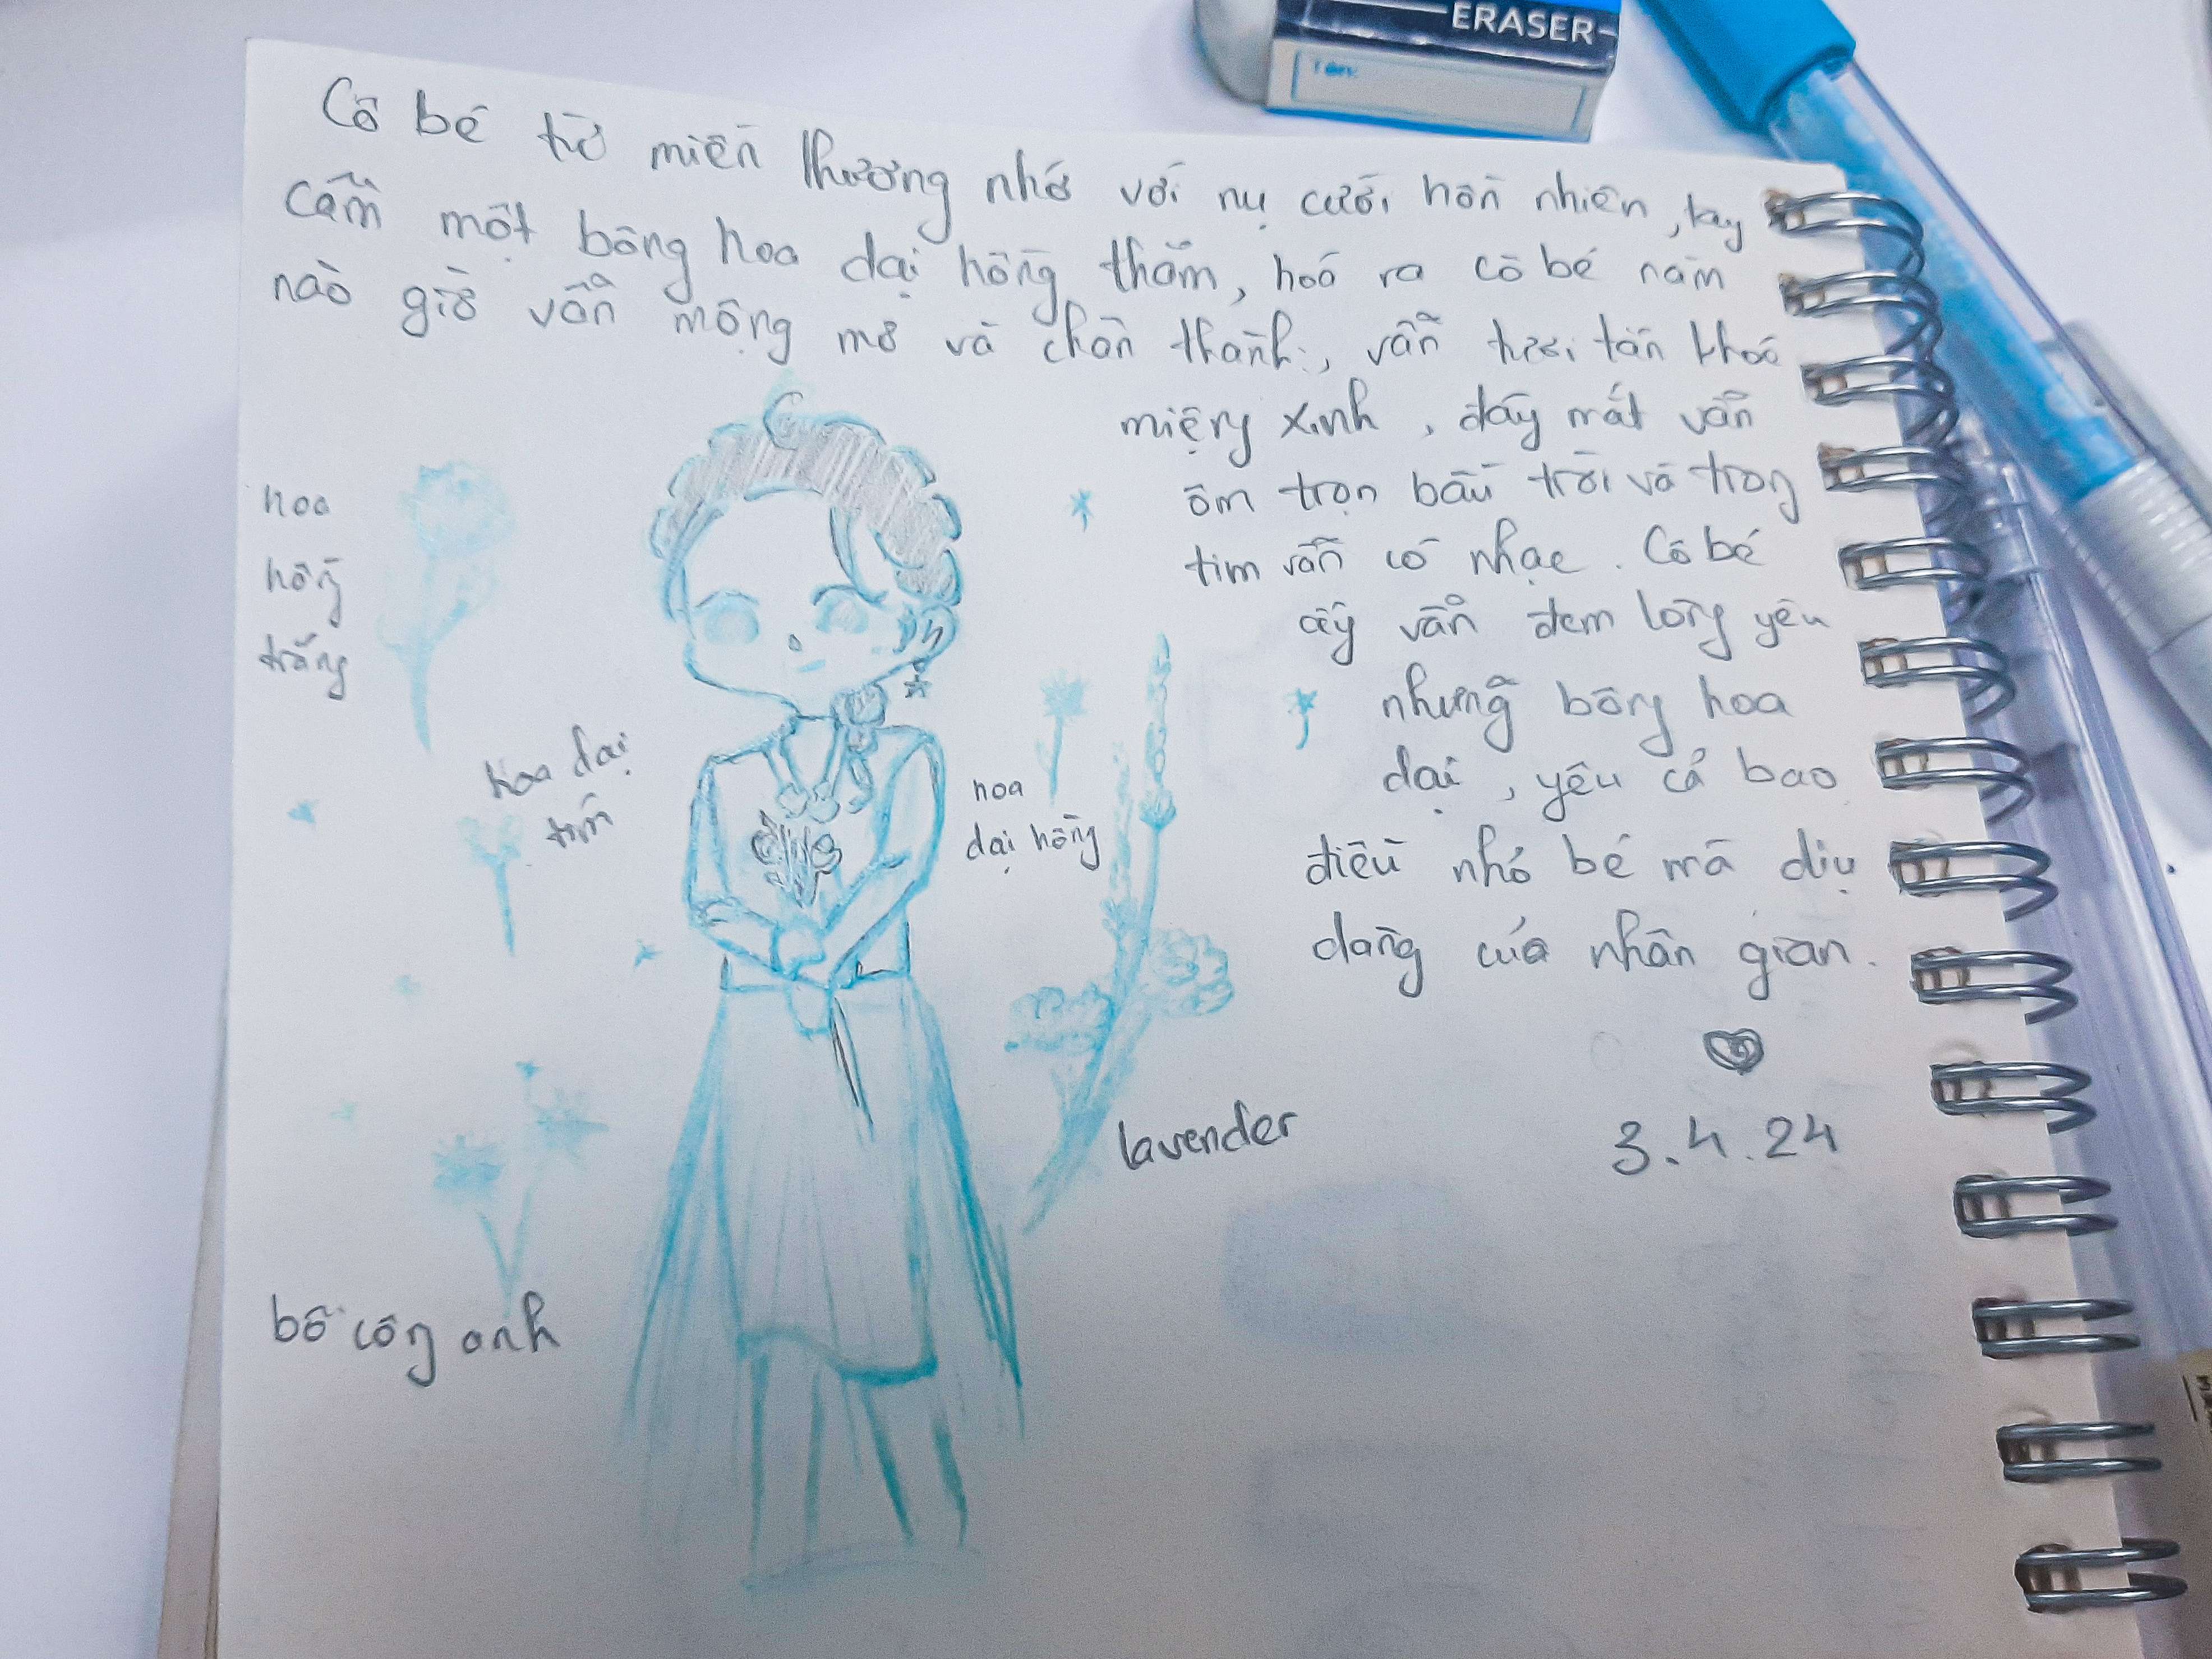 ERASER
Tên:
Cô bé từ miền thương nhớ với nụ cười hồn nhiên, tay
cầm một bông hoa dại hồng thắm, hoá ra cô bé năm
nào giờ vẫn mộng mơ và chân thành, vẫn tươi tắn khoé
miệng xinh, đáy mắt vẫn
ôm trọn bầu trời và trong
tim vẫn có nhạc. Cô bé
ấy vẫn đem lòng yêu
những bông hoa
dại, yêu cả bao
điều nhỏ bé mà dịu
dàng của nhân gian.
3.4.24
hoa
hồng
trắng
hoa dại
tím
hoa
dại hồng
lavender
bồ công anh